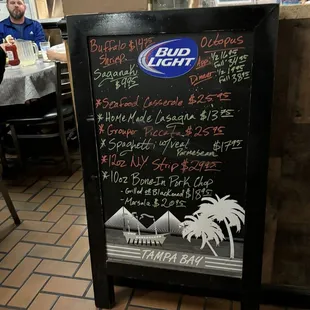 Buffalo $14.95
Shrimp
Saganaki
$9.95
BUD
LIGHT
Octopus
App. ½ 16.95
Full 34.95
Dinner ½ 19.95
Full 38.95
* Seafood Casserole $25.95
* Home Made Lasagna $13.95
* Grouper Piccata $25.95
* Spaghetti w/ veal $17.95
Parmesean
* 12oz NY Strip $24.95
* 10oz Bone-In Pork Chop
- Grilled or Blackened $18.95
- Marsala $20.95
TAMPA BAY